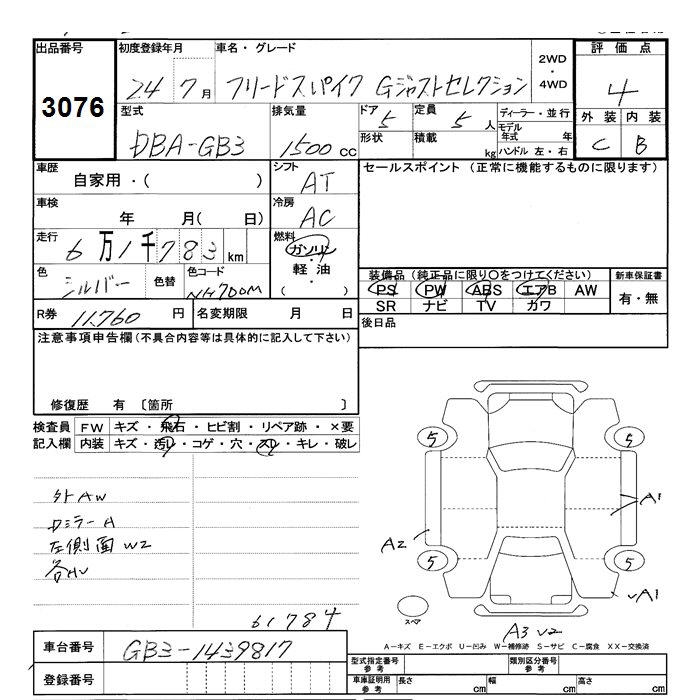 出品番号 初度登録年月 車名・グレード 2WD・4WD 評価点
3076 24 7月 フリードスパイク Gジャストセレクション 4
型式 排気量 ドア 定員 ディーラー・並行 外装 内装
DBA-GB3 1500cc 5 5人 モデル年式 年 C B
形状 積載 kg ハンドル 左・右
車歴 シフト セールスポイント (正常に機能するものに限ります)
自家用・( ) AT
車検 冷房
年 月( 日) AC
走行 燃料
6万1千783km ガソリン・軽油・( )
色 色替 色コード 装備品 (純正品に限り○をつけてください) 新車保証書
シルバー NH700M PS PW ABS エアB AW 有・無
SR ナビ TV カワ
R券 11,760円 名変期限 月 日 後日品
注意事項申告欄 (不具合内容等は具体的に記入して下さい)
修復歴 有 〔箇所 〕
検査員 FW キズ・飛石・ヒビ割・リペア跡・×要
記入欄 内装 キズ・汚レ・コゲ・穴・スレ・キレ・破レ
5 5
外AW
A1
DミラーA
左側面W2 A2
各AU
5 5
A1
スペア
61784
A3 V2
A−キズ E−エクボ U−凹み W−補修跡 S−サビ C−腐食 XX−交換済
車台番号 GB3-1439817
型式指定番号 参考 類別区分番号 参考
登録番号 車庫証明用 参考 長さ cm 幅 cm 高さ cm